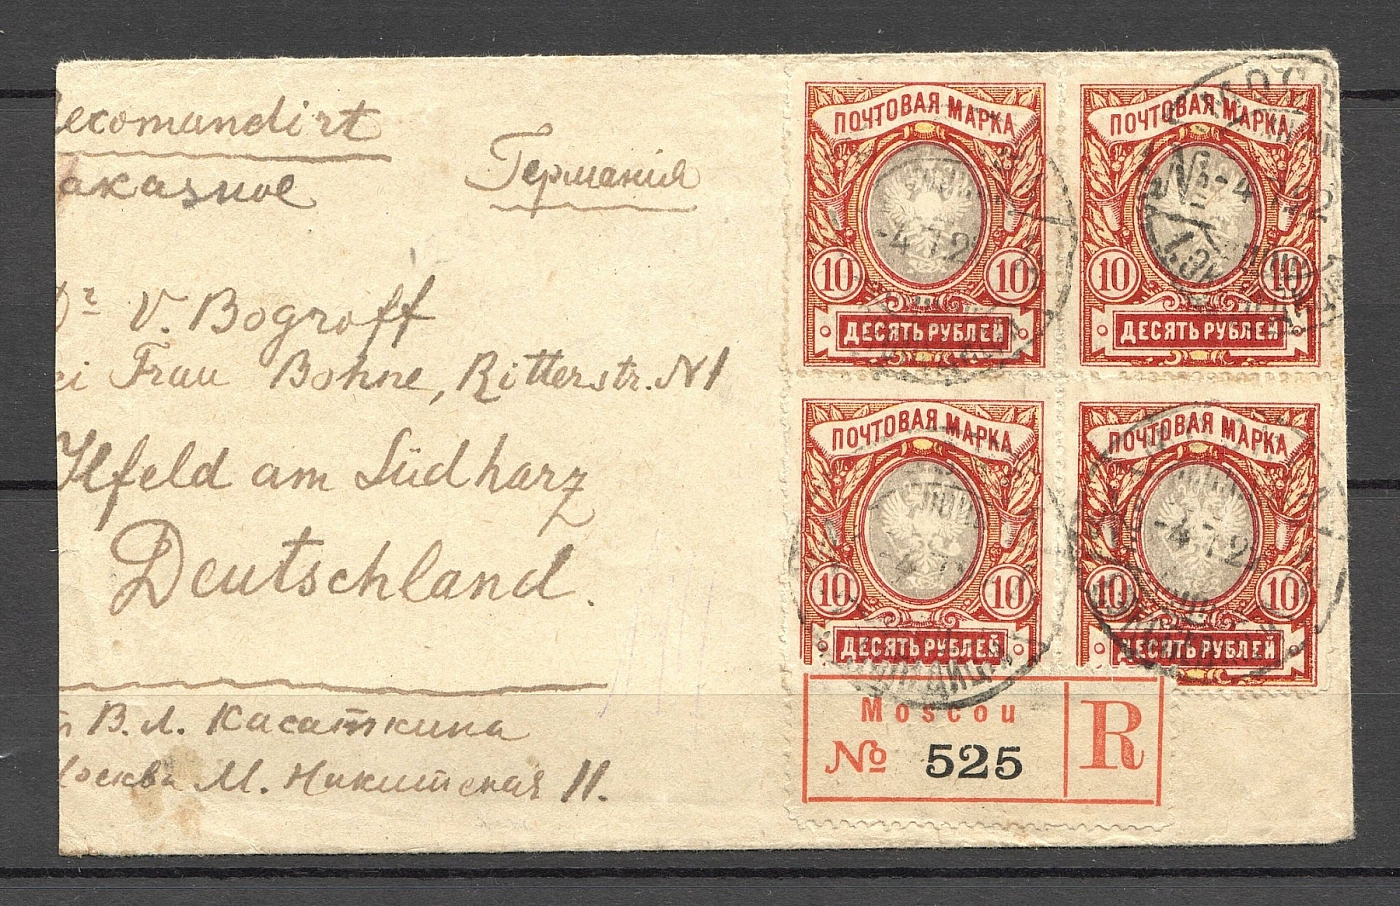 ecomandirt
Германія
аказное
Dr V. Bogroff
ei Frau Bohne, Ritterstr. N1
Ilfeld am Südharz
Deutschland.
В. Л. Касаткина
осква М. Никитская 11.
ПОЧТОВАЯ МАРКА
10 10
ДЕСЯТЬ РУБЛЕЙ
ПОЧТОВАЯ МАРКА
10 10
ДЕСЯТЬ РУБЛЕЙ
ПОЧТОВАЯ МАРКА
10 10
ДЕСЯТЬ РУБЛЕЙ
ПОЧТОВАЯ МАРКА
10 10
ДЕСЯТЬ РУБЛЕЙ
-4.7.2
-4.7.2
Moscou
№ 525
R